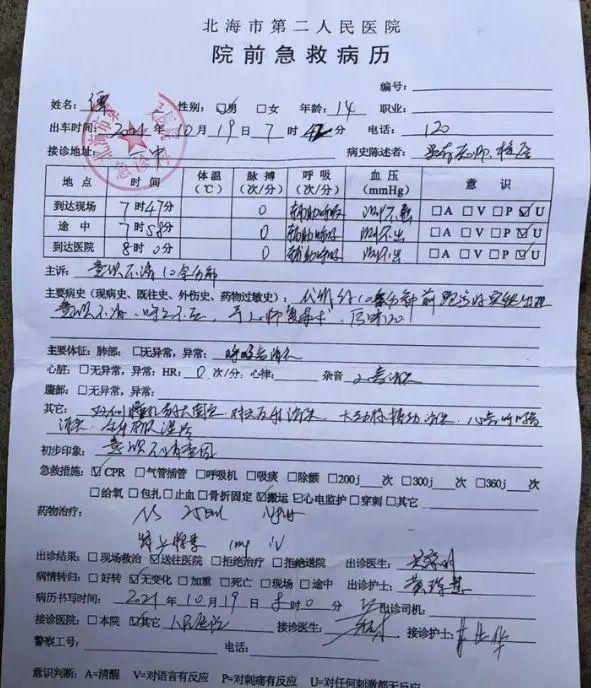 北海市第二人民医院
院前急救病历
编号:
姓名: 谭 性别: ☑男 □女 年龄: 14 职业:
出车时间: 2021年10月19日7时4分 电话: 120
接诊地址: 一中 病史陈述者: 老师
地点 时间 体温(℃) 脉搏(次/分) 呼吸(次/分) 血压(mmHg) 意识
到达现场 7时47分 0 辅助呼吸 测不出 □A □V □P ☑U
途中 7时58分 0 辅助呼吸 测不出 □A □V □P ☑U
到达医院 8时0分 0 辅助呼吸 测不出 □A □V □P ☑U
主诉: 意识不清10余分钟
主要病史(现病史、既往史、外伤史、药物过敏史): 代诉约10余分钟前跑步时突然出现
意识不清、呼之不应,
主要体征: 肺部: □无异常, 异常: 呼吸音消失
心脏: □无异常, 异常: HR: 0次/分; 心律: 杂音
腹部: □无异常, 异常:
其它: 双侧瞳孔散大固定, 对光反射消失, 大动脉搏动消失, 心音呼吸音
消失,
初步印象: 意识不清查因
急救措施: ☑CPR □气管插管 □呼吸机 □吸痰 □除颤 □200j 次 □300j 次 □360j 次
□给氧 □包扎 □止血 □骨折固定 ☑搬运 ☑心电监护 □穿刺 □其它
药物治疗: NS 250ml
肾上腺素 1mg iv
出诊结果: □现场救治 ☑送往医院 □拒绝治疗 □拒绝送院 出诊医生:
病情转归: □好转 ☑无变化 □加重 □死亡 □现场 □途中 出诊护士: 黄
病历书写时间: 2021年10月19日8时0分 出诊司机:
接诊医院: □本院 ☑其它 人民医院 接诊医生: 接诊护士:
警察工号: 电话:
意识判断: A=清醒 V=对语言有反应 P=对刺痛有反应 U=对任何刺激都无反应
北海市第二人民医院
急诊科